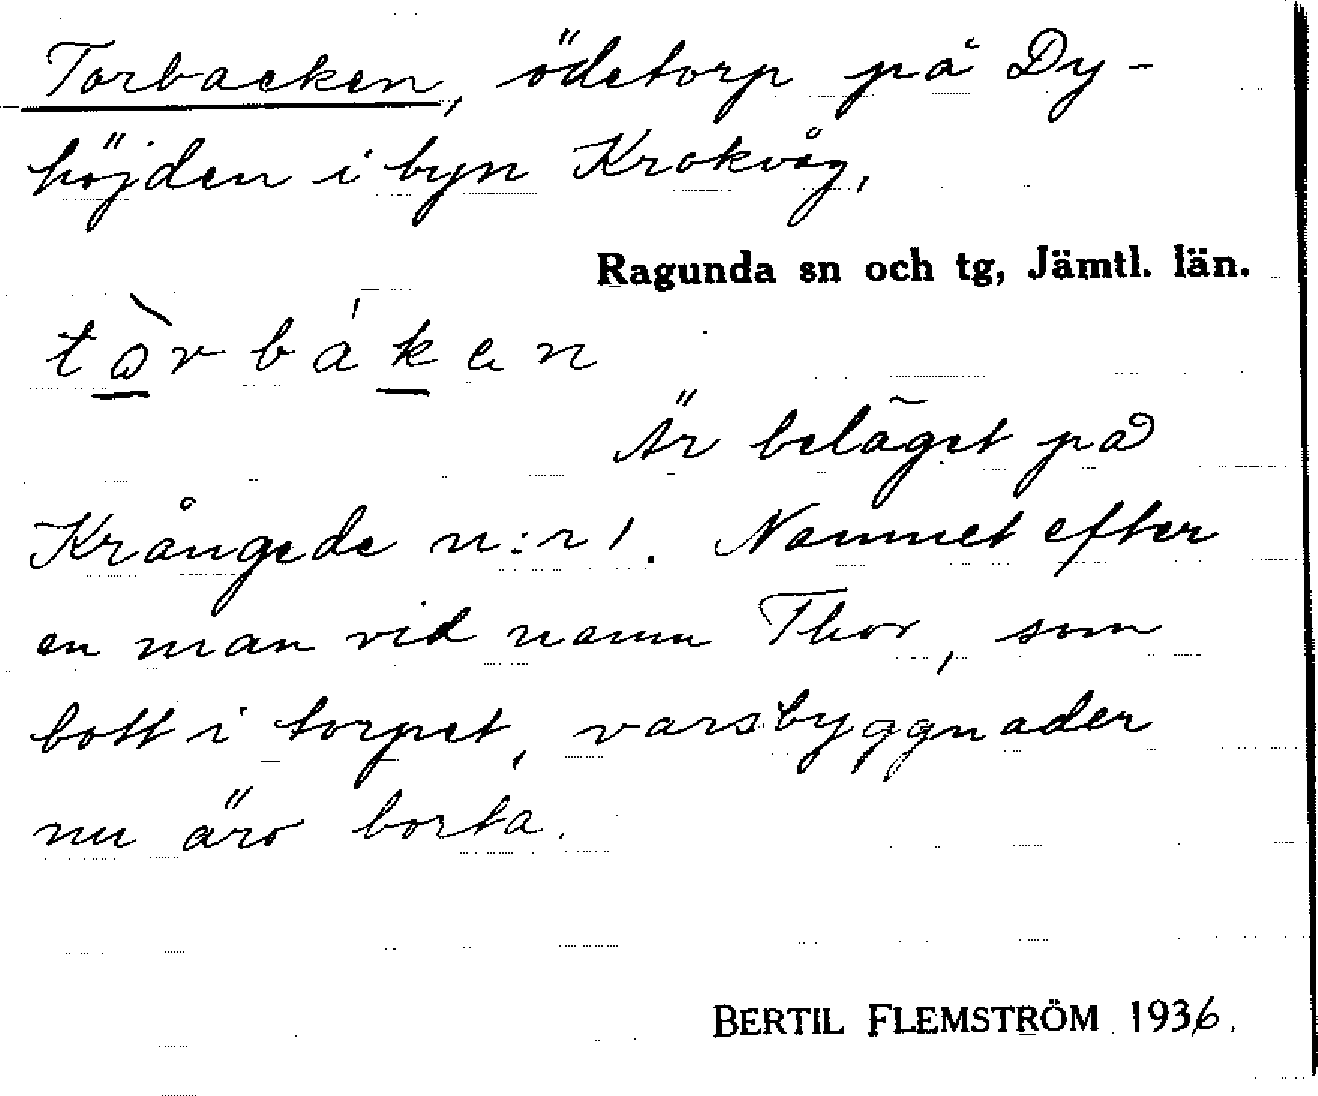 Torbacken, ödetorp på Dy-
höjden i byn Krokvåg,
Ragunda sn och tg, Jämtl. län.
tòrbáken
Är beläget på
Krångede n:r 1. Namnet efter
en man vid namn Thor, som
bott i torpet, varsbyggnader
nu äro borta.
BERTIL FLEMSTRÖM 1936.